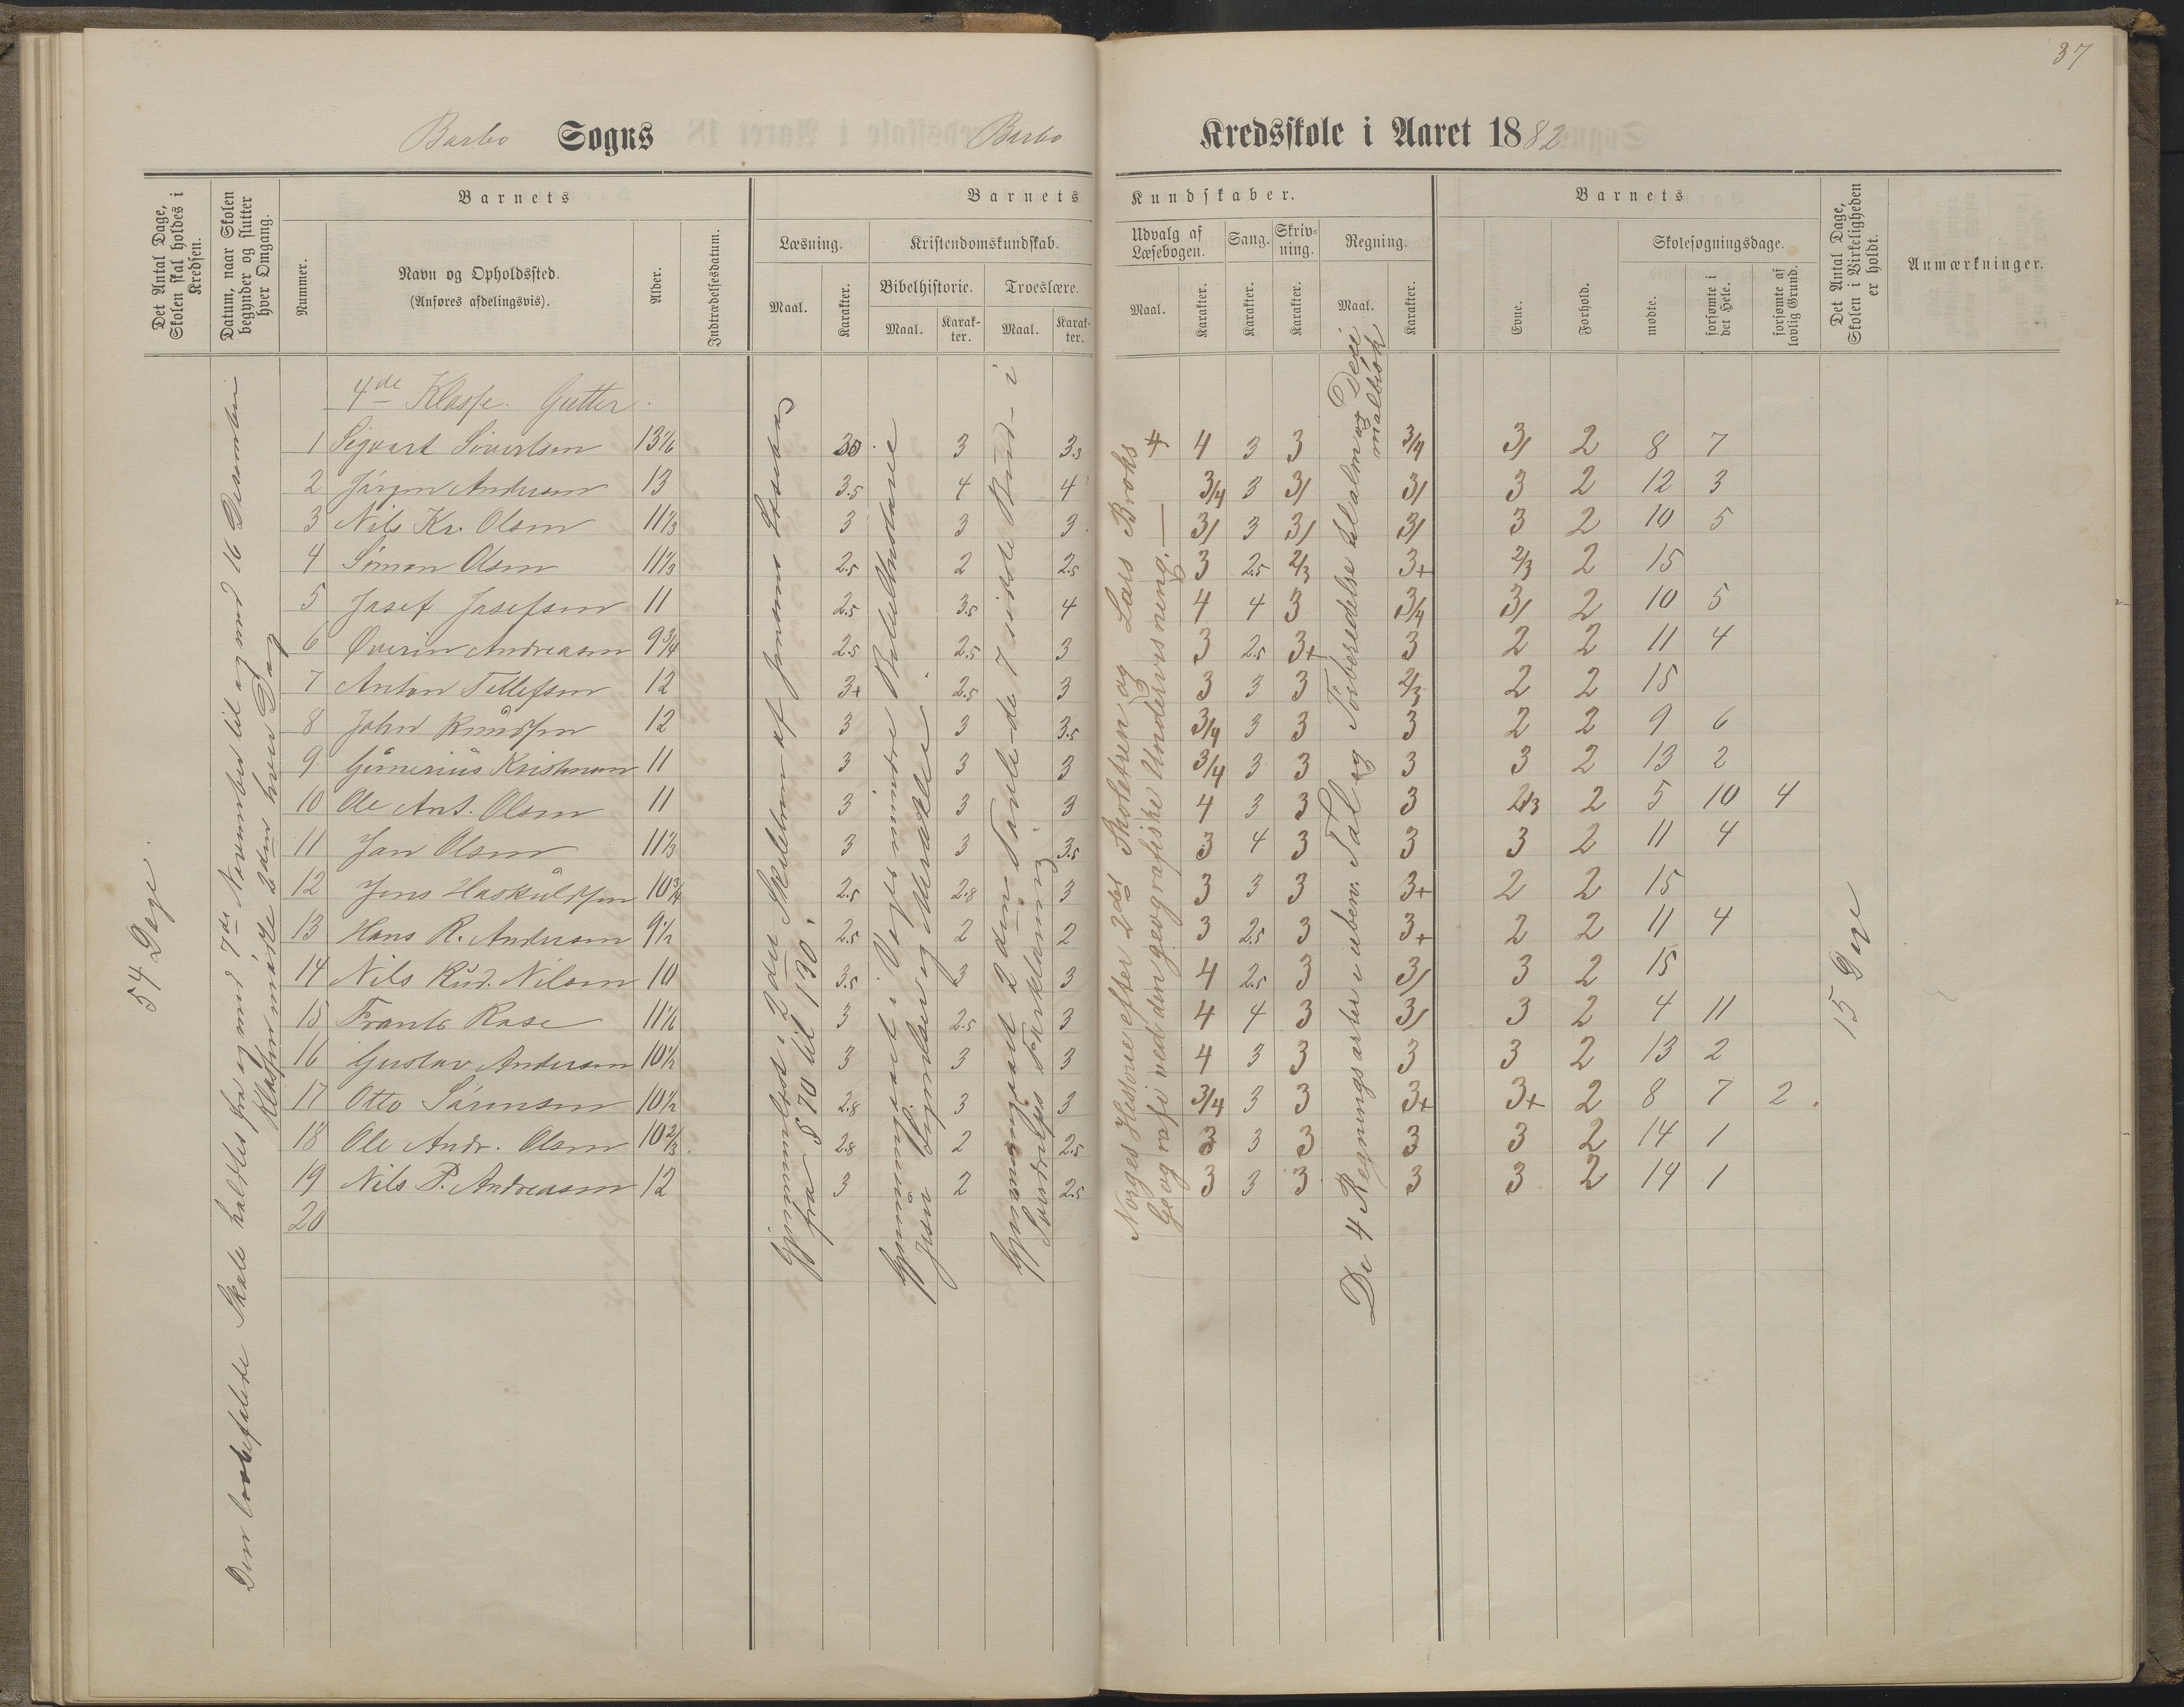 37
Barbo Sogns Barbo Kredsskole i Aaret 1882
Det Antal Dage, Skolen skal holdes i Kredsen.
Datum, naar Skolen begynder og slutter hver Omgang.
Barnets
Nummer.
Navn og Opholdssted.
(Anføres afdelingsvis).
Alder.
Indtrædelsesdatum.
Barnets Kundskaber.
Læsning.
Maal.
Karakter.
Kristendomskundskab.
Bibelhistorie.
Maal.
Karakter.
Troeslære.
Maal.
Karakter.
Udvalg af Læsebogen.
Maal.
Karakter.
Sang.
Karakter.
Skrivning.
Karakter.
Regning.
Maal.
Karakter.
Barnets
Evne.
Forhold.
Skolesøgningsdage.
mødte.
forsømte i det Hele.
forsømte af lovlig Grund.
Det Antal Dage, Skolen i Virkeligheden er holdt.
Anmærkninger.
54 Dage.
Den lovbefalede Skole holdtes fra og med 7de November til og med 16 Desember
Klassen mødte 2den hver Dag
4de Klasse. Gutter.
1 Sigvart Sivertsen 13 1/6 3 3.3 4 4 3 3 3/4 3/ 2 8 7
2 Jörgen Andersen 13 3.5 4 4 3/4 3 3/ 3/ 3 2 12 3
3 Nils Kr. Olsen 11 1/3 3 3 3 3/ 3 3/ 3/ 3 2 10 5
4 Simon Olsen 11 1/3 2.5 2 2.5 3 2.5 2/3 3+ 2/3 2 15
5 Josef Josefsen 11 2.5 3.5 4 4 4 3 3/4 3/ 2 10 5
6 Øverin Andreasen 9 3/4 2.5 2.5 3 3 2.5 3+ 3 2 2 11 4
7 Anton Tellefsen 12 3+ 2.5 3 3 3 3 2/3 2 2 15
8 John Knudsen 12 3 3 3.5 3/4 3 3 3 2 2 9 6
9 Kristensen 11 3 3 3 3/4 3 3 3 3 2 13 2
10 Ole Ant. Olsen 11 3 3 3 4 3 3 3 2/3 2 5 10 4
11 Jan Olsen 11 1/3 3 3 3.5 3 4 3 3 3 2 11 4
12 Jens Haskuldsen 10 3/4 2.5 2.8 3 3 3 3 3+ 2 2 15
13 Hans R. Andersen 9 1/2 2.5 2 2 3 2.5 3 3+ 2 2 11 4
14 Nils Rud. Nilsen 10 3.5 3 3 4 2.5 3 3/ 3 2 15
15 Frants Rose 11 1/6 3 2.5 3 4 4 3 3/ 3 2 4 11
16 Gustav Andersen 10 1/2 3 3 3 4 3 3 3 3 2 13 2
17 Otto Sörensen 10 1/2 2.8 3 3 3/4 3 3 3+ 3+ 2 8 7 2.
18 Ole Andr. Olsen 10 2/3 2.8 2 2.5 3 3 3 3 3 2 14 1
19 Nils P. Andreasen 12 3 2 2.5 3 3 3 3 3 2 14 1
20
Gjennemlæst i 2det Skoletrin af Jensens Læsebog
fra S 70 til 130.
Gjennemgaaet i Vogts mindre Bibelhistorie
Jesu Lignelser og Mirakler.
Gjennemgaaet 2den Part de 7 sidste Bud i
Sverdrups Forklaring
Norges Historie efter 2det Skoletrin og Lars Broks
Geografi ved den geografiske Undervisning.
De 4 Regningsarter i uben. Tal og Forberedelse til alm og Deci
malbrök
15 Dage